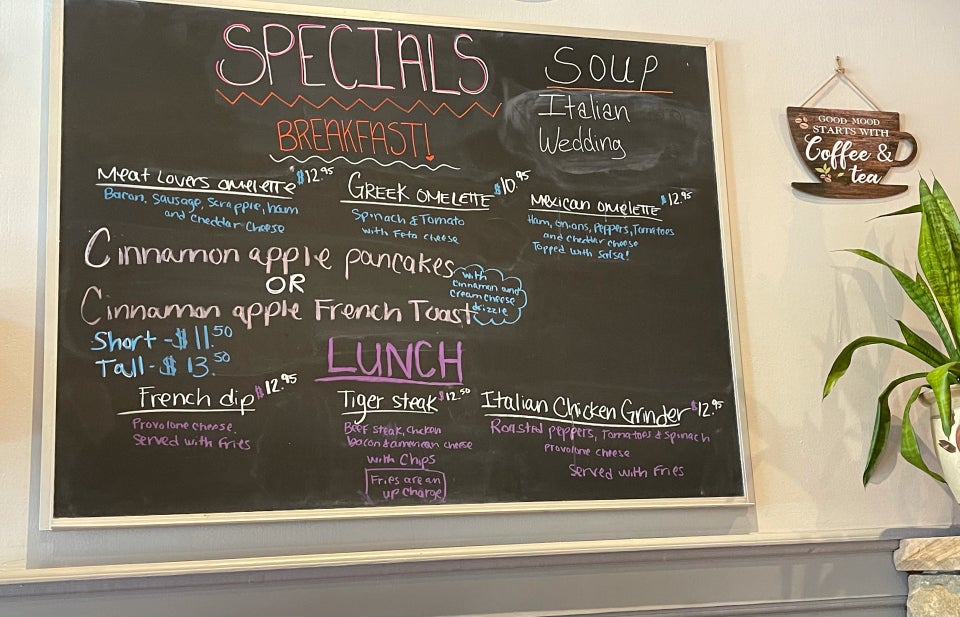 SPECIALS
BREAKFAST!
SOUP
Italian
Wedding
Meat Lovers omelette $12.95
Bacon, Sausage, Scrapple, ham
and cheddar cheese
GREEK OMELETTE $10.95
Spinach & Tomato
with Feta cheese
Mexican omelette $12.95
Ham, onions, Peppers, Tomatoes
and cheddar cheese
Topped with Salsa!
Cinnamon apple pancakes
OR
Cinnamon apple French Toast
with
cinnamon and
cream cheese
drizzle
Short - $11.50
Tall - $13.50
LUNCH
French dip $12.95
Provolone cheese.
Served with fries
Tiger steak $12.50
Beef steak, chicken
bacon & american cheese
with Chips
Fries are an
up charge
Italian Chicken Grinder $12.95
Roasted peppers, Tomatoes & Spinach
provolone cheese
Served with Fries
GOOD MOOD
STARTS WITH
Coffee &
tea